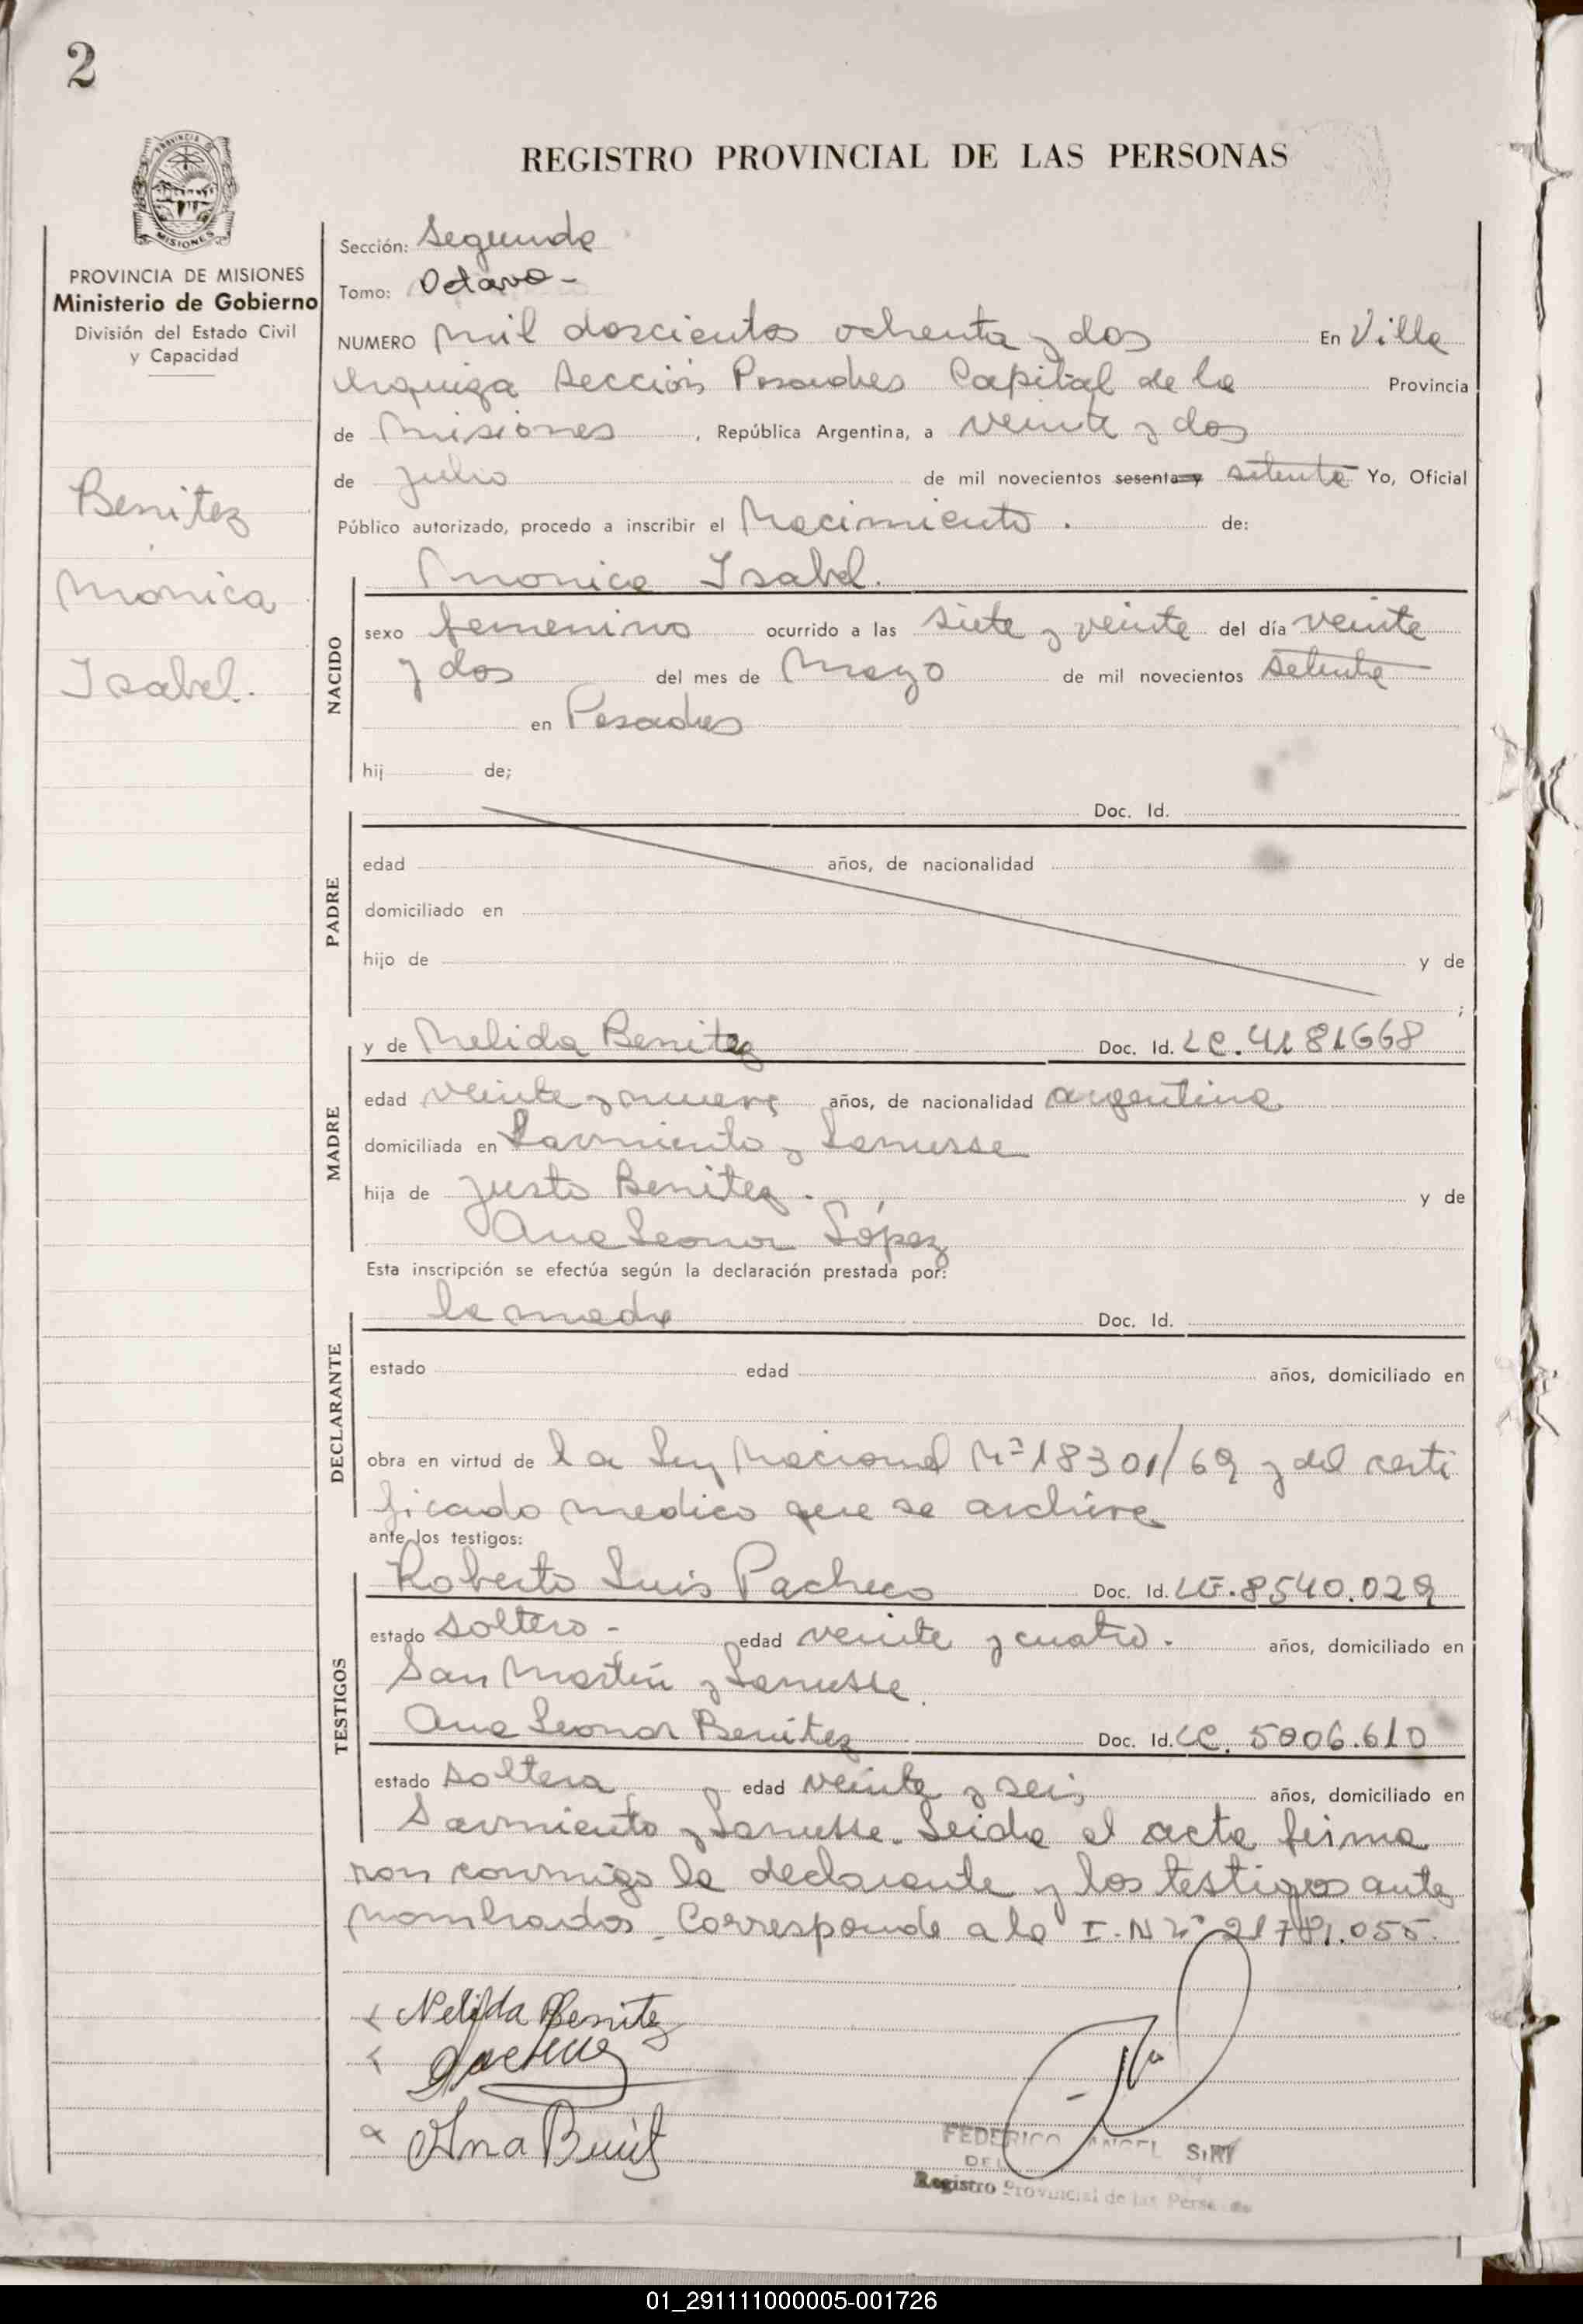 2
PROVINCIA DE MISIONES
Ministerio de Gobierno
División del Estado Civil
y Capacidad
Benitez
Monica
Isabel.
REGISTRO PROVINCIAL DE LAS PERSONAS
Sección: Segunda
Tomo: Octavo -
NUMERO Mil doscientos ochenta y dos En Villa
Urquiza Sección Posadas Capital de la Provincia
de Misiones, República Argentina, a veinte y dos
de Julio de mil novecientos sesenta y setenta Yo, Oficial
Público autorizado, procedo a inscribir el Nacimiento. de:
Monica Isabel.
NACIDO
sexo femenino ocurrido a las siete y veinte del día veinte
y dos del mes de Mayo de mil novecientos setenta
en Posadas
hij de;
PADRE
Doc. Id.
edad años, de nacionalidad
domiciliado en
hijo de y de
;
MADRE
y de Nelida Benitez Doc. Id. LC. 4181668
edad veinte y nueve años, de nacionalidad argentina
domiciliada en Sarmiento y Lanusse
hija de Justo Benitez. y de
Ana Leonor López
Esta inscripción se efectúa según la declaración prestada por:
DECLARANTE
la madre Doc. Id.
estado edad años, domiciliado en
obra en virtud de la Ley Nacional Nº 18301/69 y del certi
ficado medico que se archiva
ante los testigos:
TESTIGOS
Roberto Luis Pacheco Doc. Id. LE. 8540.029
estado soltero - edad veinte y cuatro. años, domiciliado en
San Martín y Lanusse.
Ana Leonor Benitez Doc. Id. LC. 5006.610
estado soltera edad veinte y seis años, domiciliado en
Sarmiento y Lanusse. Leida el acta firma
ron conmigo la declarante y los testigos ante
nombrados. Corresponde a la I.N Nº 21781.055.
Nelida Benitez
Ana Benit
FEDERICO ANGEL
Registro Provincial de las Perso
01_291111000005-001726